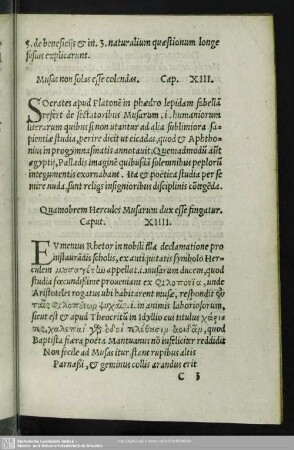 5. de beneficijs & in. 3. naturalium quæstionum longe
fusius explicarunt.
Musas non solas esse colendas. Cap. XIII.
SOcrates apud Platonẽ in phædro lepidam fabellã
refert de sectatoribus Musarum .i. humaniorum
literarum quibus si non utantur ad alia sublimiora sa-
pientiæ studia, perire dicit ut cicadas, quod & Aphtho-
nius in progymnasmatis annotauit. Quemadmodũ autẽ
ægyptij, Palladis imaginẽ quibusdã solemnibus peplorũ
integumentis exornabant. Ita & poëtica studia per se
mire nuda, sunt reliqs insignioribus disciplinis cõtegẽda.
Quamobrem Hercules Musarum dux esse fingatur.
Caput. XIIII.
EVmenus Rhetor in nobili illa declamatione pro
instaurãdis scholis, ex antiquitatis symbolo Her-
culem μουσαγέτω appellat .i. musarum ducem, quod
studia fœcundissime proueniant ex φιλοπονία, unde
Aristoteles rogatus ubi habitarent musæ, respondit
ταῖς φιλοπόνων ψυχαῖς .i. in animis laboriosorum,
sicut est & apud Theocritũ in Idyllio cui titulus χάρι
χαλεπαὶ ὁδοὶ ἀοιδᾶν, quod
Baptista fiæra poëta Mantuanus nõ infeliciter reddidit
Non facile ad Musas itur. stant rupibus altis
Parnasũ, & geminus collis arandus erit
C 3